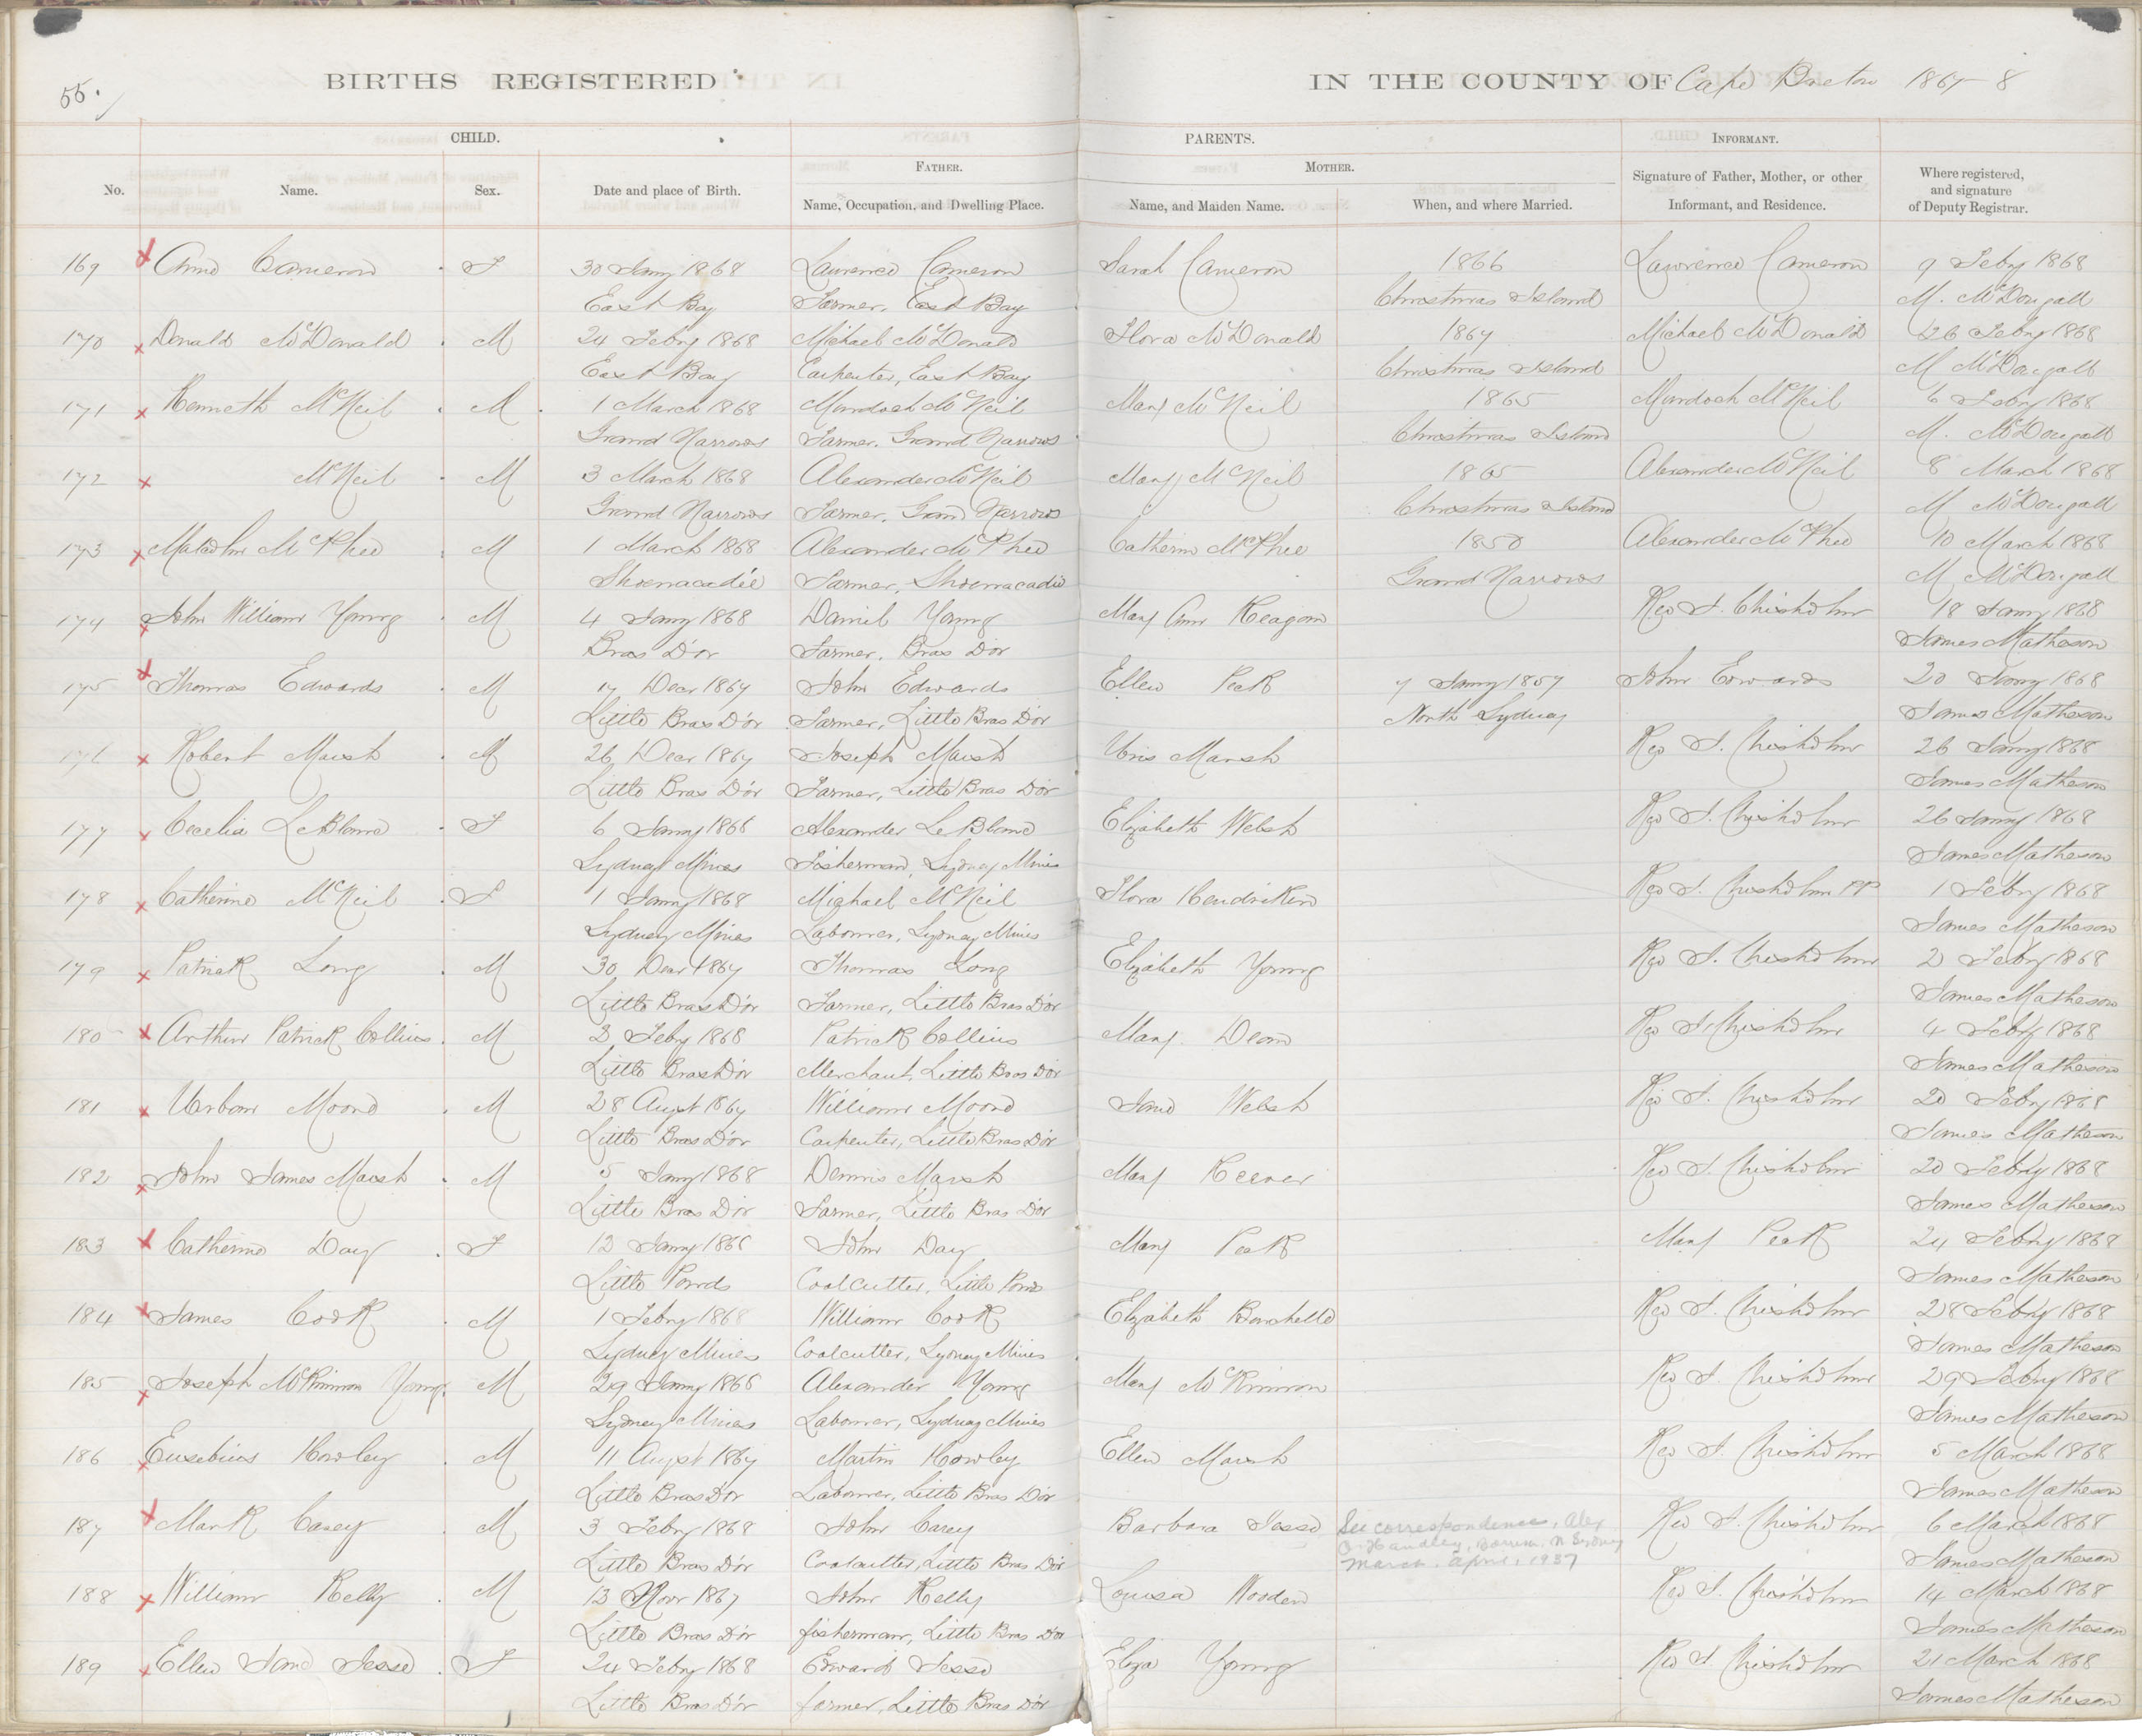 55.
BIRTHS REGISTERED IN THE COUNTY OF Cape Breton 1867-8
CHILD. PARENTS. INFORMANT.
FATHER. MOTHER.
No. Name. Sex. Date and place of Birth. Name, Occupation, and Dwelling Place. Name, and Maiden Name. When, and where Married. Signature of Father, Mother, or other Informant, and Residence. Where registered, and signature of Deputy Registrar.
169 Anne Cameron F 30 Jany 1868 Lawrence Cameron Sarah Cameron 1866 Lawrence Cameron 9 Feby 1868
East Bay Farmer, East Bay Christmas Island M. McDougall
170 Donald McDonald M 24 Feby 1868 Michael McDonald Flora McDonald 1867 Michael McDonald 26 Feby 1868
East Bay Carpenter, East Bay Christmas Island M McDougall
171 Kenneth McNeil M 1 March 1868 Murdoch McNeil Mary McNeil 1865 Murdoch McNeil 6 Feby 1868
Grand Narrows Farmer, Grand Narrows Christmas Island M. McDougall
172 McNeil M 3 March 1868 Alexander McNeil Mary McNeil 1865 Alexander McNeil 8 March 1868
Grand Narrows Farmer, Grand Narrows Christmas Island M McDougall
173 Malcolm McPhee M 1 March 1868 Alexander McPhee Catherine McPhee 1850 Alexander McPhee 10 March 1868
Shoenacadie Farmer, Shoenacadie Grand Narrows M McDougall
174 John William Young M 4 Jany 1868 Daniel Young Mary Ann Reagan Rev J. Chisholm 18 Jany 1868
Bras D'or Farmer, Bras D'or James Matheson
175 Thomas Edwards M 17 Decr 1867 John Edwards Ellen Peck 7 Jany 1857 John Edwards 20 Jany 1868
Little Bras D'or Farmer, Little Bras D'or North Sydney James Matheson
176 Robert Marsh M 26 Decr 1867 Joseph Marsh Marsh Rev J. Chisholm 26 Jany 1868
Little Bras D'or Farmer, Little Bras D'or James Matheson
177 Cecelia LeBlanc F 6 Jany 1868 Alexander LeBlanc Elizabeth Welsh Rev J. Chisholm 26 Jany 1868
Sydney Mines Fisherman, Sydney Mines James Matheson
178 Catherine McNeil F 1 Jany 1868 Michael McNeil Flora Hendriken Rev J. Chisholm PP 1 Feby 1868
Sydney Mines Labourer, Sydney Mines James Matheson
179 Patrick Long M 30 Decr 1867 Thomas Long Elizabeth Young Rev J. Chisholm 2 Feby 1868
Little Bras D'or Farmer, Little Bras D'or James Matheson
180 Arthur Patrick Collins M 3 Feby 1868 Patrick Collins Mary Dean Rev J. Chisholm 4 Feby 1868
Little Bras D'or Merchant, Little Bras D'or James Matheson
181 Urban Moore M 28 Augst 1867 William Moore Jane Welsh Rev J. Chisholm 20 Feby 1868
Little Bras D'or Carpenter, Little Bras D'or James Matheson
182 John James Marsh M 5 Jany 1868 Dennis Marsh Mary Keever Rev J. Chisholm 20 Feby 1868
Little Bras D'or Farmer, Little Bras D'or James Matheson
183 Catherine Day F 12 Jany 1868 John Day Mary Peck Mary Peck 24 Feby 1868
Little Ponds Coalcutter, Little Ponds James Matheson
184 James Cook M 1 Feby 1868 William Cook Elizabeth Rev J. Chisholm 28 Feby 1868
Sydney Mines Coalcutter, Sydney Mines James Matheson
185 Joseph McKinnon Young M 29 Jany 1868 Alexander Young Mary McKinnon Rev J. Chisholm 29 Feby 1868
Sydney Mines Labourer, Sydney Mines James Matheson
186 Eusebius Howley M 11 Augst 1867 Martin Howley Ellen Marsh Rev J. Chisholm 5 March 1868
Little Bras D'or Labourer, Little Bras D'or James Matheson
187 Mark Carey M 3 Feby 1868 John Carey Barbara Jesso See correspondence, Alex Rev J. Chisholm 6 March 1868
Little Bras D'or Coalcutter, Little Bras D'or Handley, N. Sydney James Matheson
March. April, 1937
188 William Kelly M 13 Novr 1867 John Kelly Louisa Wooden Rev J. Chisholm 14 March 1868
Little Bras D'or fisherman, Little Bras D'or James Matheson
189 Ellen Jane Jesso F 24 Feby 1868 Edward Jesso Eliza Young Rev J Chisholm 21 March 1868
Little Bras D'or farmer, Little Bras D'or James Matheson